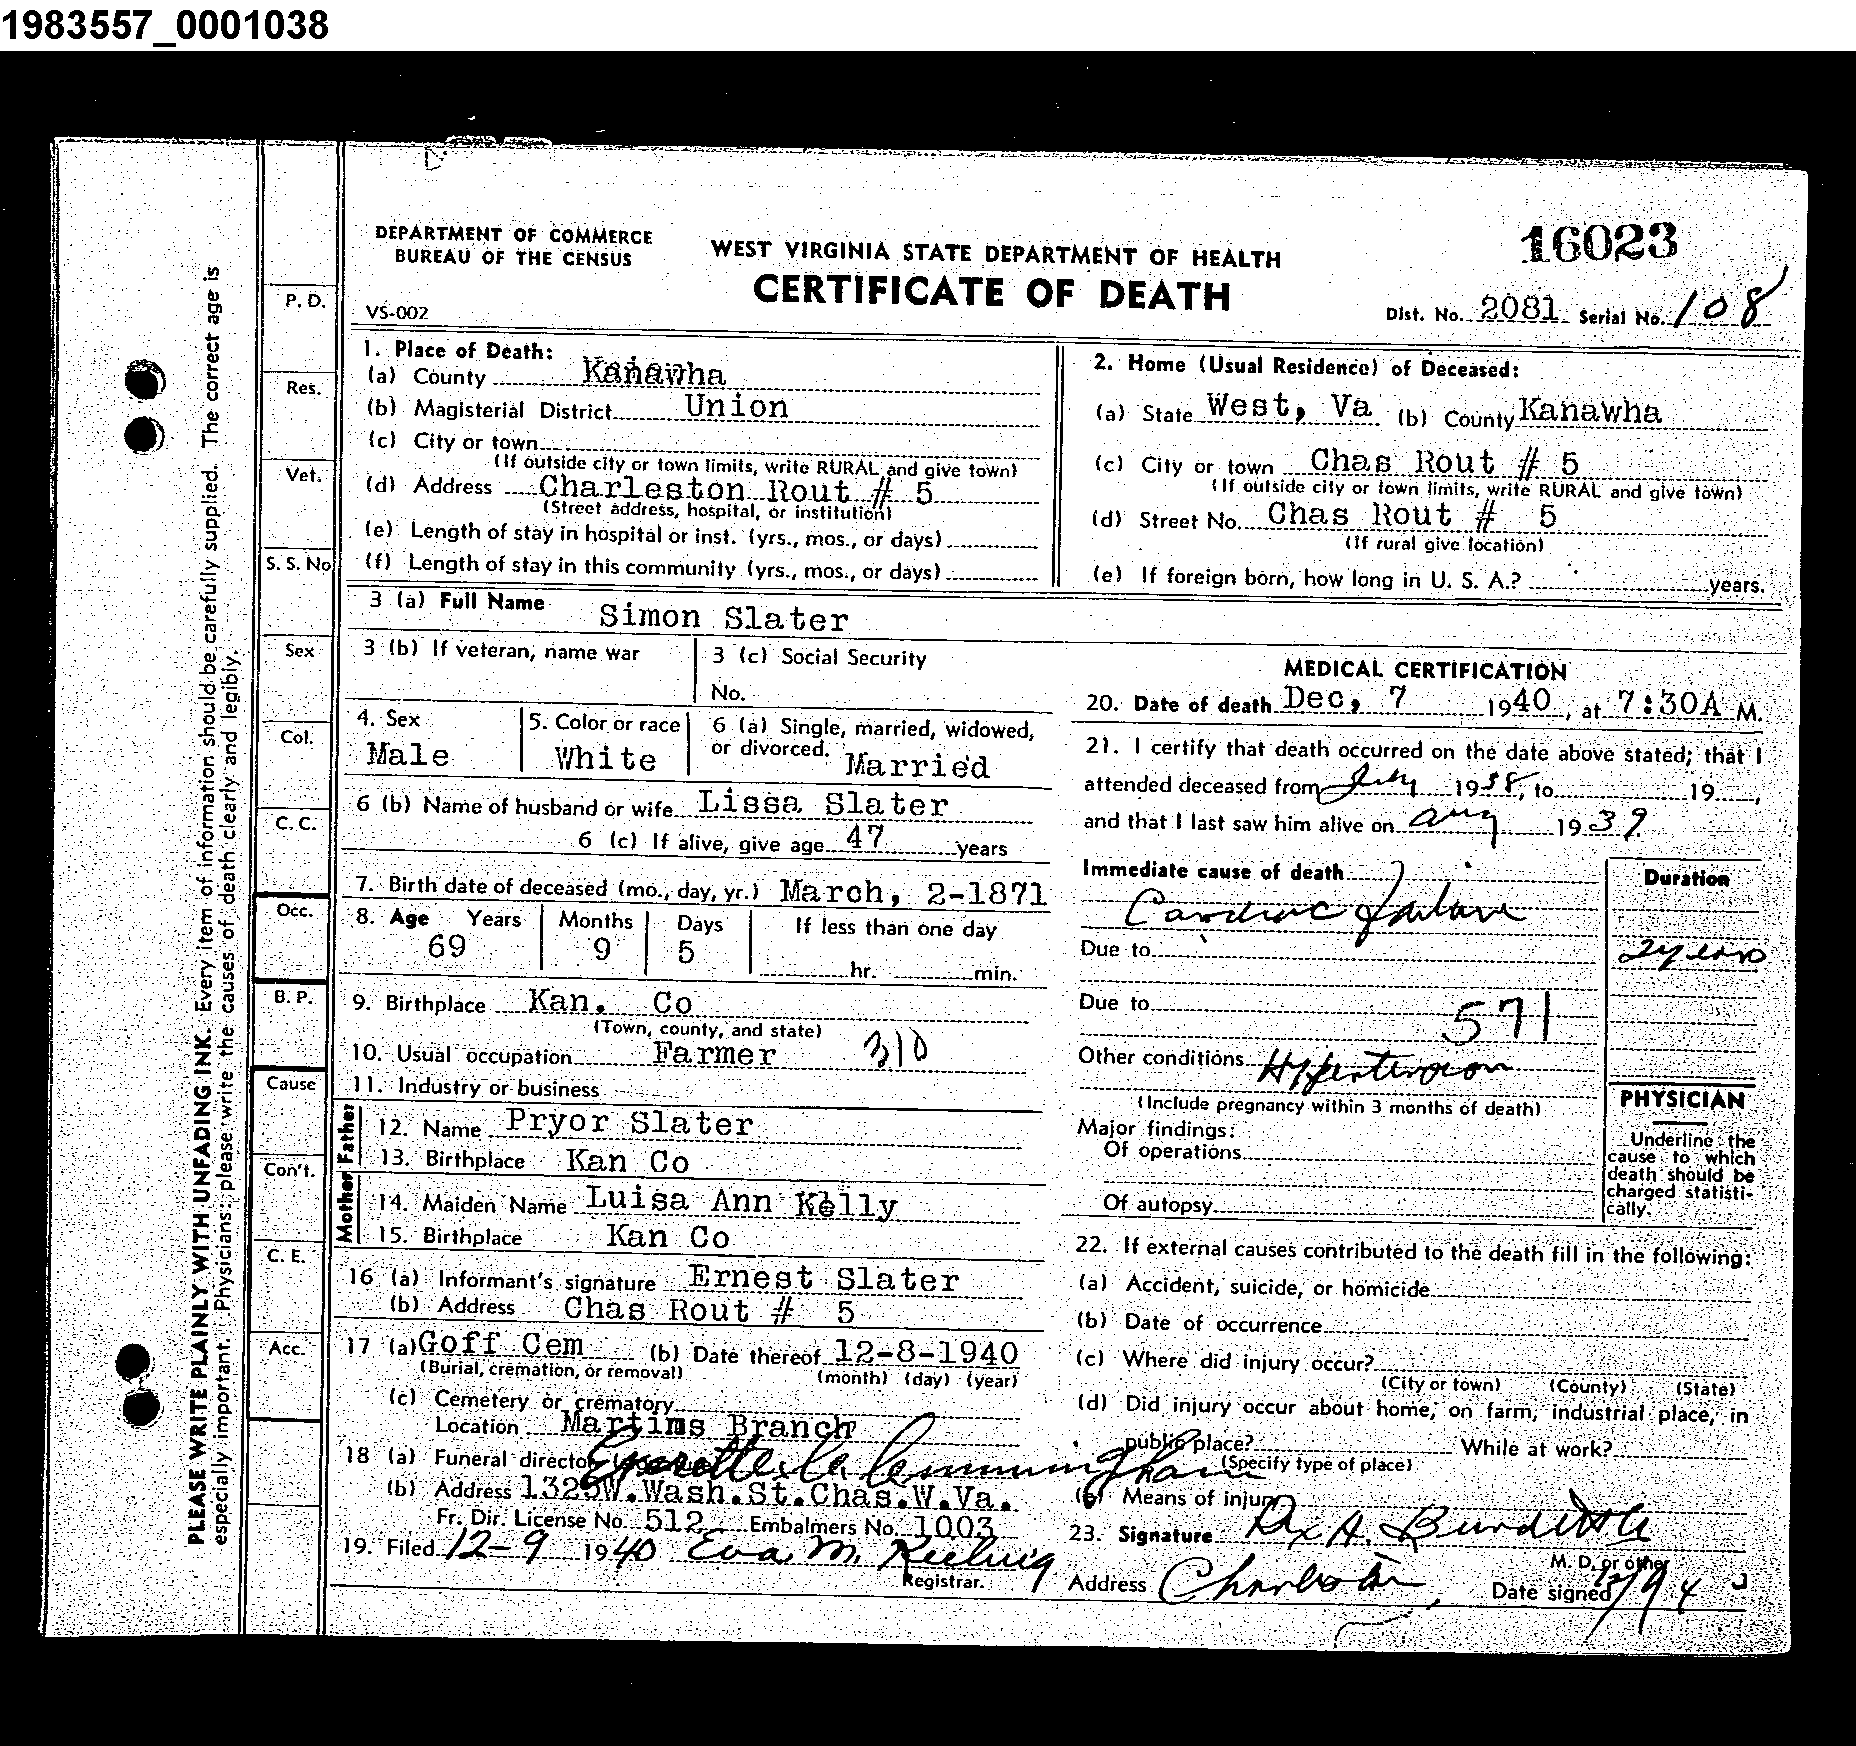 1983557_0001038
DEPARTMENT OF COMMERCE
BUREAU OF THE CENSUS
WEST VIRGINIA STATE DEPARTMENT OF HEALTH
CERTIFICATE OF DEATH
16023
VS-002
Dist. No. 2081 Serial No. 108
PLEASE WRITE PLAINLY WITH UNFADING INK. Every item of information should be carefully supplied. The correct age is
especially important. Physicians: please write the causes of death clearly and legibly.
P. D.
Res.
Vet.
S. S. No
Sex
Col.
C. C.
Occ.
B. P.
Cause
Con't.
C. E.
Acc.
1. Place of Death:
(a) County Kanawha
(b) Magisterial District Union
(c) City or town
(If outside city or town limits, write RURAL and give town)
(d) Address Charleston Rout # 5
(Street address, hospital, or institution)
(e) Length of stay in hospital or inst. (yrs., mos., or days)
(f) Length of stay in this community (yrs., mos., or days)
2. Home (Usual Residence) of Deceased:
(a) State West, Va (b) County Kanawha
(c) City or town Chas Rout # 5
(If outside city or town limits, write RURAL and give town)
(d) Street No. Chas Rout # 5
(If rural give location)
(e) If foreign born, how long in U. S. A.? years.
3 (a) Full Name Simon Slater
3 (b) If veteran, name war
3 (c) Social Security
No.
4. Sex
Male
5. Color or race
White
6 (a) Single, married, widowed,
or divorced. Married
6 (b) Name of husband or wife Lissa Slater
6 (c) If alive, give age 47 years
7. Birth date of deceased (mo., day, yr.) March, 2-1871
8. Age Years Months Days If less than one day
69 9 5
hr. min.
9. Birthplace Kan. Co
(Town, county, and state)
10. Usual occupation Farmer 310
11. Industry or business
Father
12. Name Pryor Slater
13. Birthplace Kan Co
Mother
14. Maiden Name Luisa Ann Kelly
15. Birthplace Kan Co
16 (a) Informant's signature Ernest Slater
(b) Address Chas Rout # 5
17 (a) Goff Cem (b) Date thereof 12-8-1940
(Burial, cremation, or removal) (month) (day) (year)
(c) Cemetery or crematory
Location Martins Branch
18 (a) Funeral director Cunningham
(b) Address 1325W.Wash.St.Chas.W.Va.
Fr. Dir. License No. 512 Embalmers No. 1003
19. Filed 12-9 1940 Eva M.
Registrar.
MEDICAL CERTIFICATION
20. Date of death Dec, 7 1940, at 7:30A M.
21. I certify that death occurred on the date above stated; that I
attended deceased from July 1938, to 19 ,
and that I last saw him alive on Aug 1939
Immediate cause of death
Cardiac failure
Duration
Due to
2 years
Due to
571
Other conditions Hypertension
(Include pregnancy within 3 months of death)
Major findings:
Of operations
Of autopsy
PHYSICIAN
Underline the
cause to which
death should be
charged statisti-
cally.
22. If external causes contributed to the death fill in the following:
(a) Accident, suicide, or homicide
(b) Date of occurrence
(c) Where did injury occur?
(City or town) (County) (State)
(d) Did injury occur about home, on farm, industrial place, in
public place? While at work?
(Specify type of place)
(e) Means of injury
23. Signature A. Burdette
M. D. or other
Address Charleston, Date signed